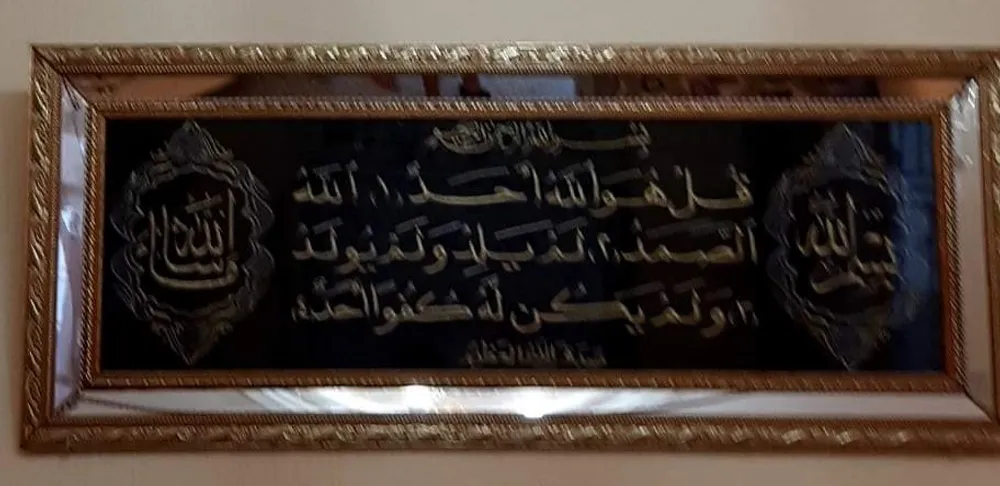 بسم الله الرحمن الرحيم
قُلْ هُوَ اللَّهُ أَحَدٌ (١) اللَّهُ
الصَّمَدُ (٢) لَمْ يَلِدْ وَلَمْ يُولَدْ
(٣) وَلَمْ يَكُن لَّهُ كُفُوًا أَحَدٌ (٤)
صدق الله العظيم
بسم الله
ما شاء الله